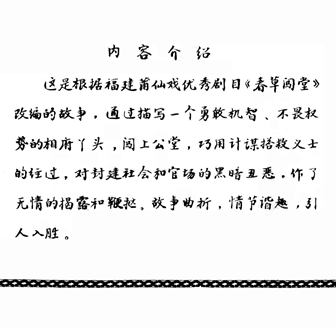 内容介绍
这是根据福建莆仙戏优秀剧目《春草闯堂》
改编的故事，通过描写一个勇敢机智、不畏权
势的相府丫头，闯上公堂，巧用计谋搭救义士
的经过，对封建社会和官场的黑暗丑恶，作了
无情的揭露和鞭挞。故事曲折，情节谐趣，引
人入胜。